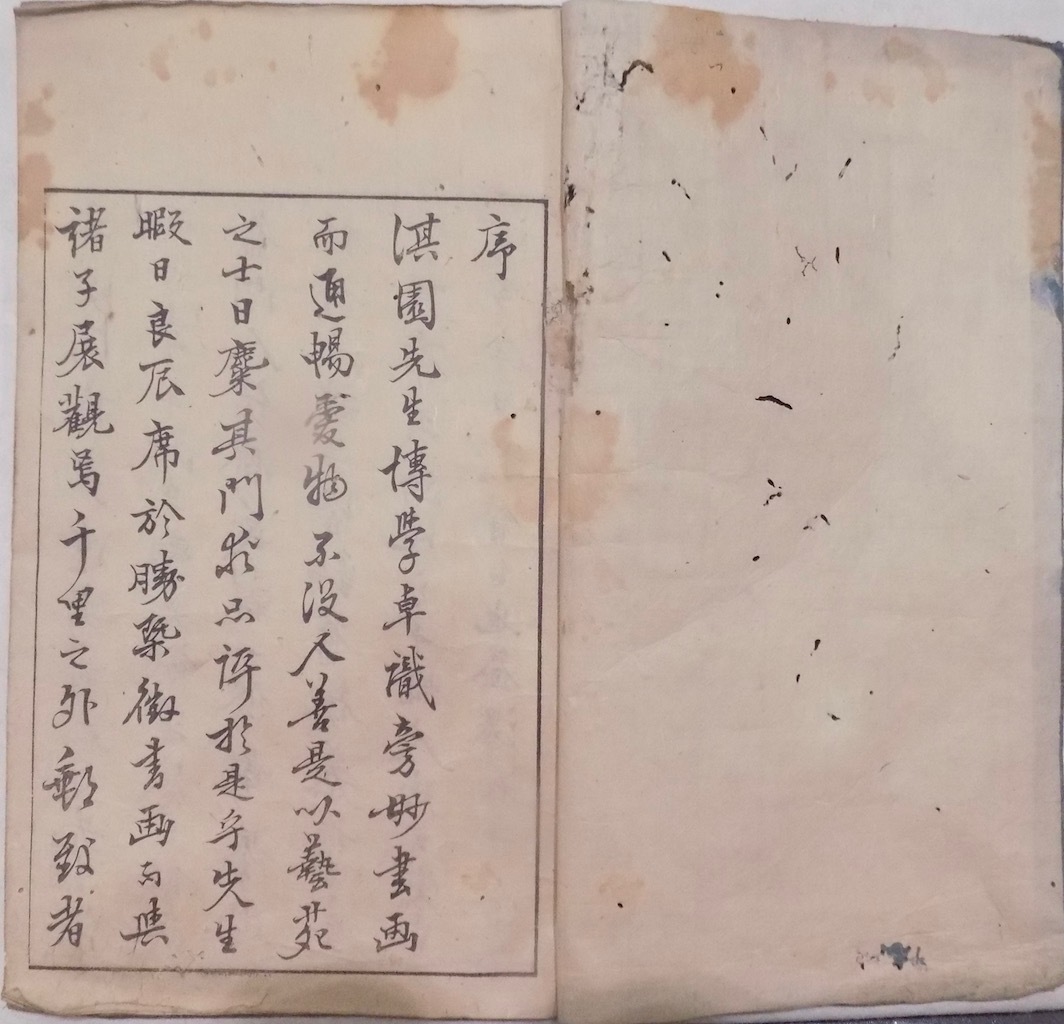 序
淇園先生博學卓識旁妙書画
而通暢愛物不沒人善是以藝苑
之士日麇其門求品評於是乎先生
暇日良辰席於勝槩徵書画而與
諸子展觀焉千里之外郵致者